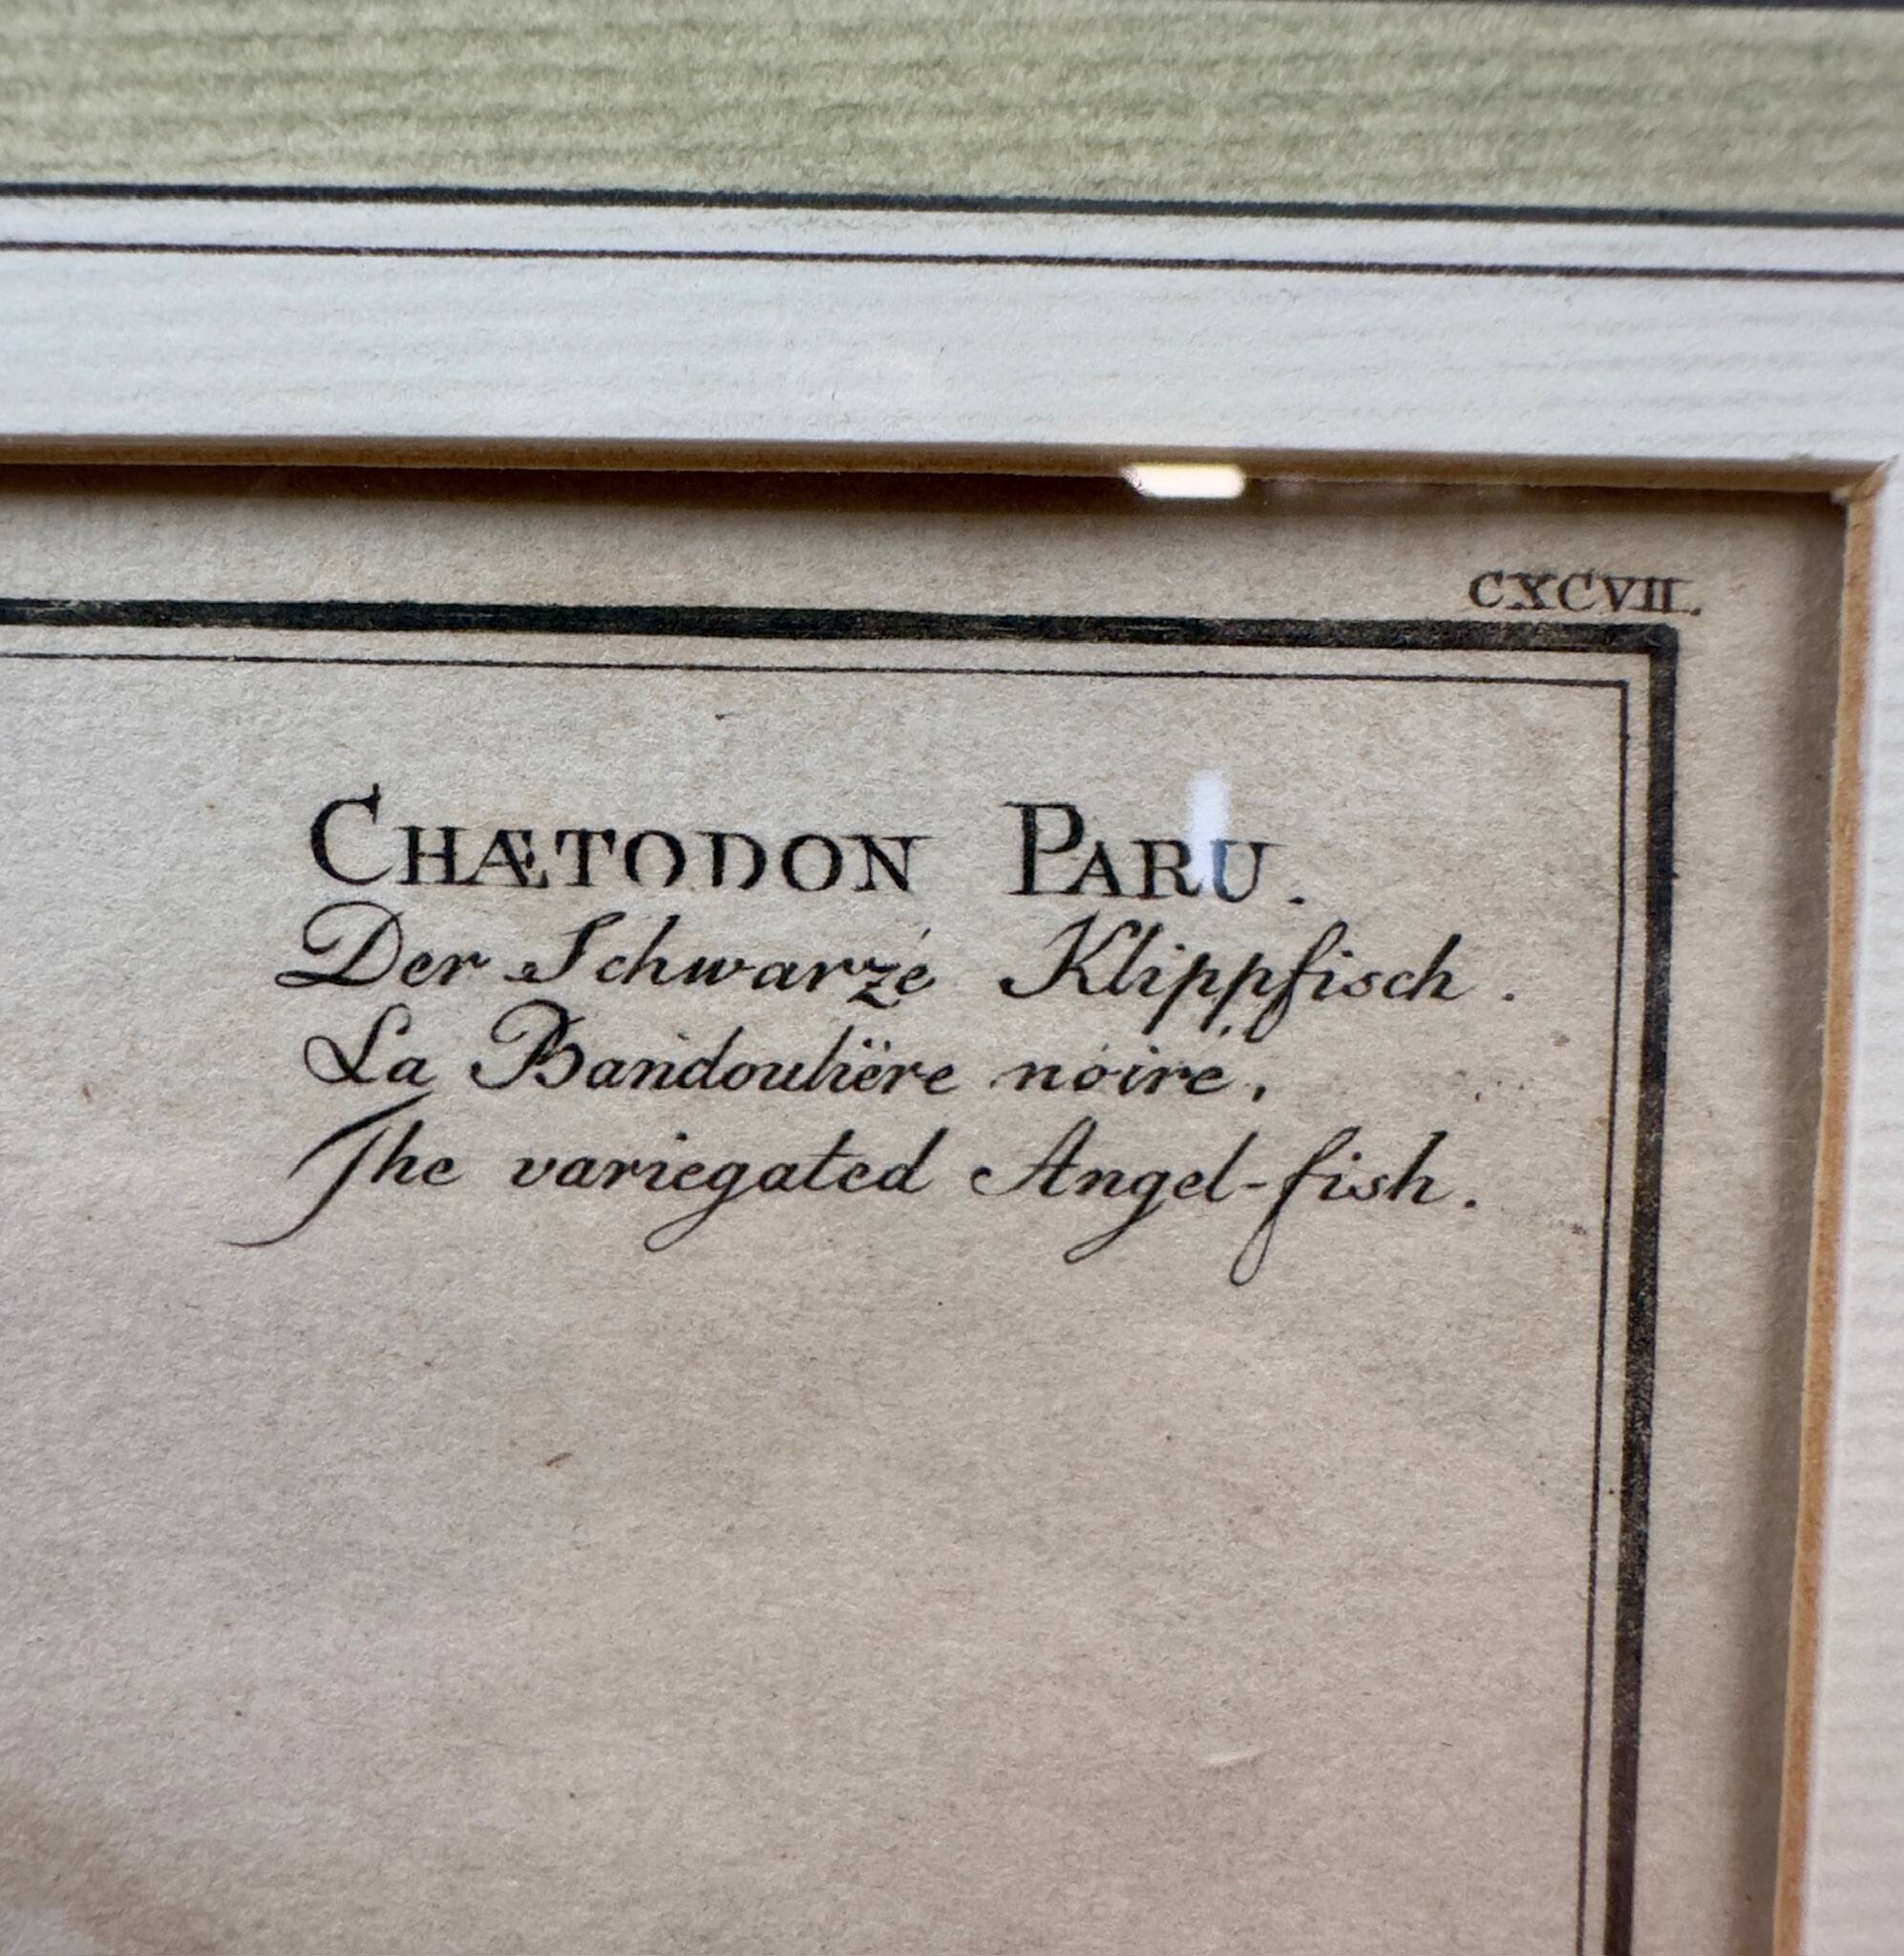 CXCVII.
CHÆTODON PARU.
Der Schwarze Klippfisch.
La Bandouliëre noire.
The variegated Angel-fish.